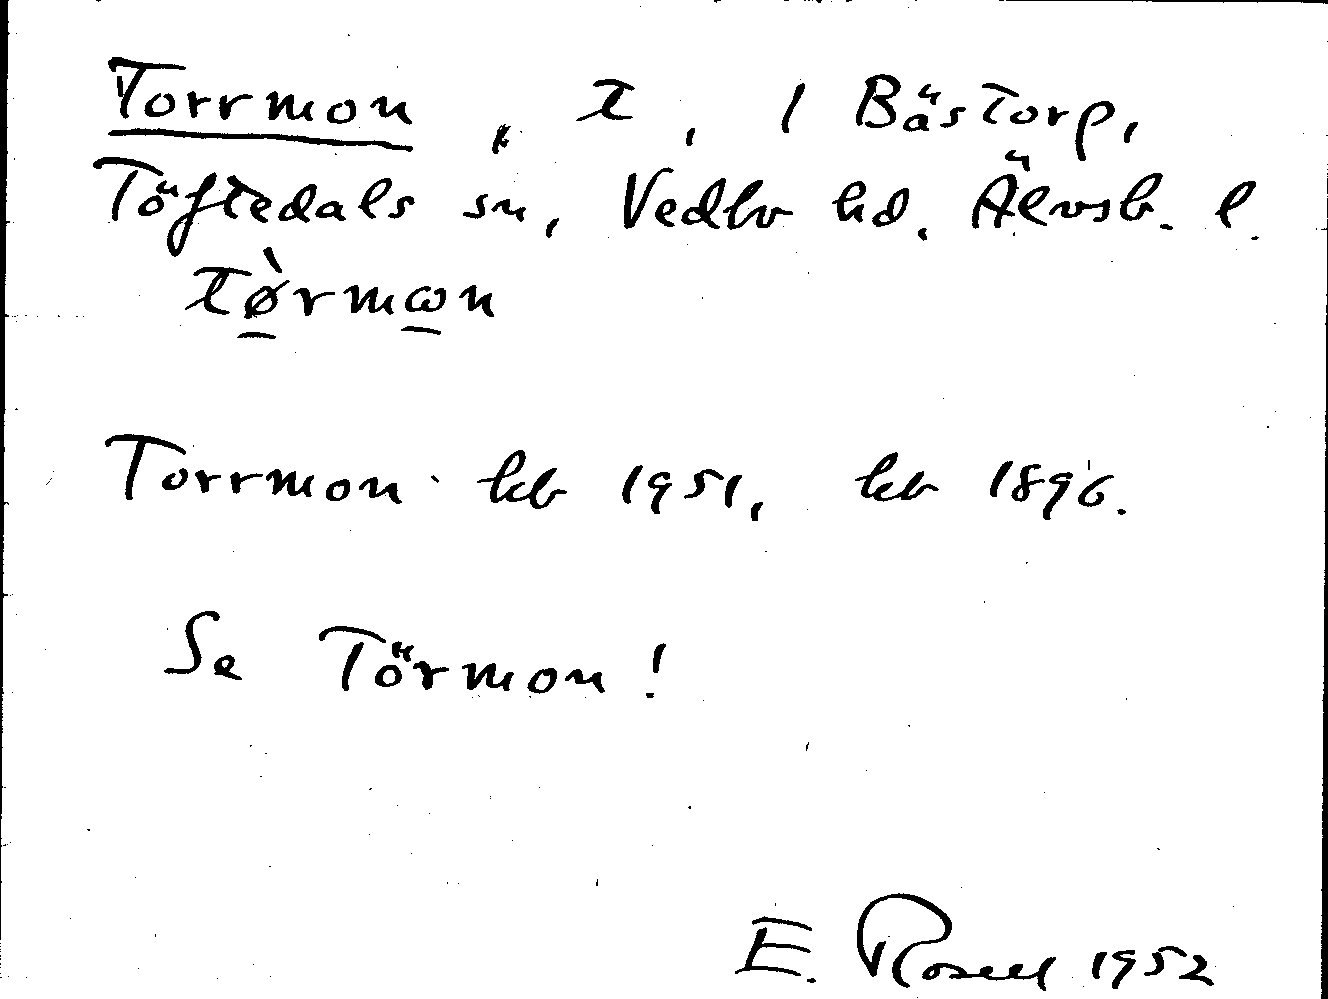 Torrmon, t, 1 Bästorp,
Töftedals sn, Vedbo hd. Älvsb. l.
tø̀rmωn
Torrmon kb 1951, kb 1896.
Se Törmon!
E. Rosell 1952